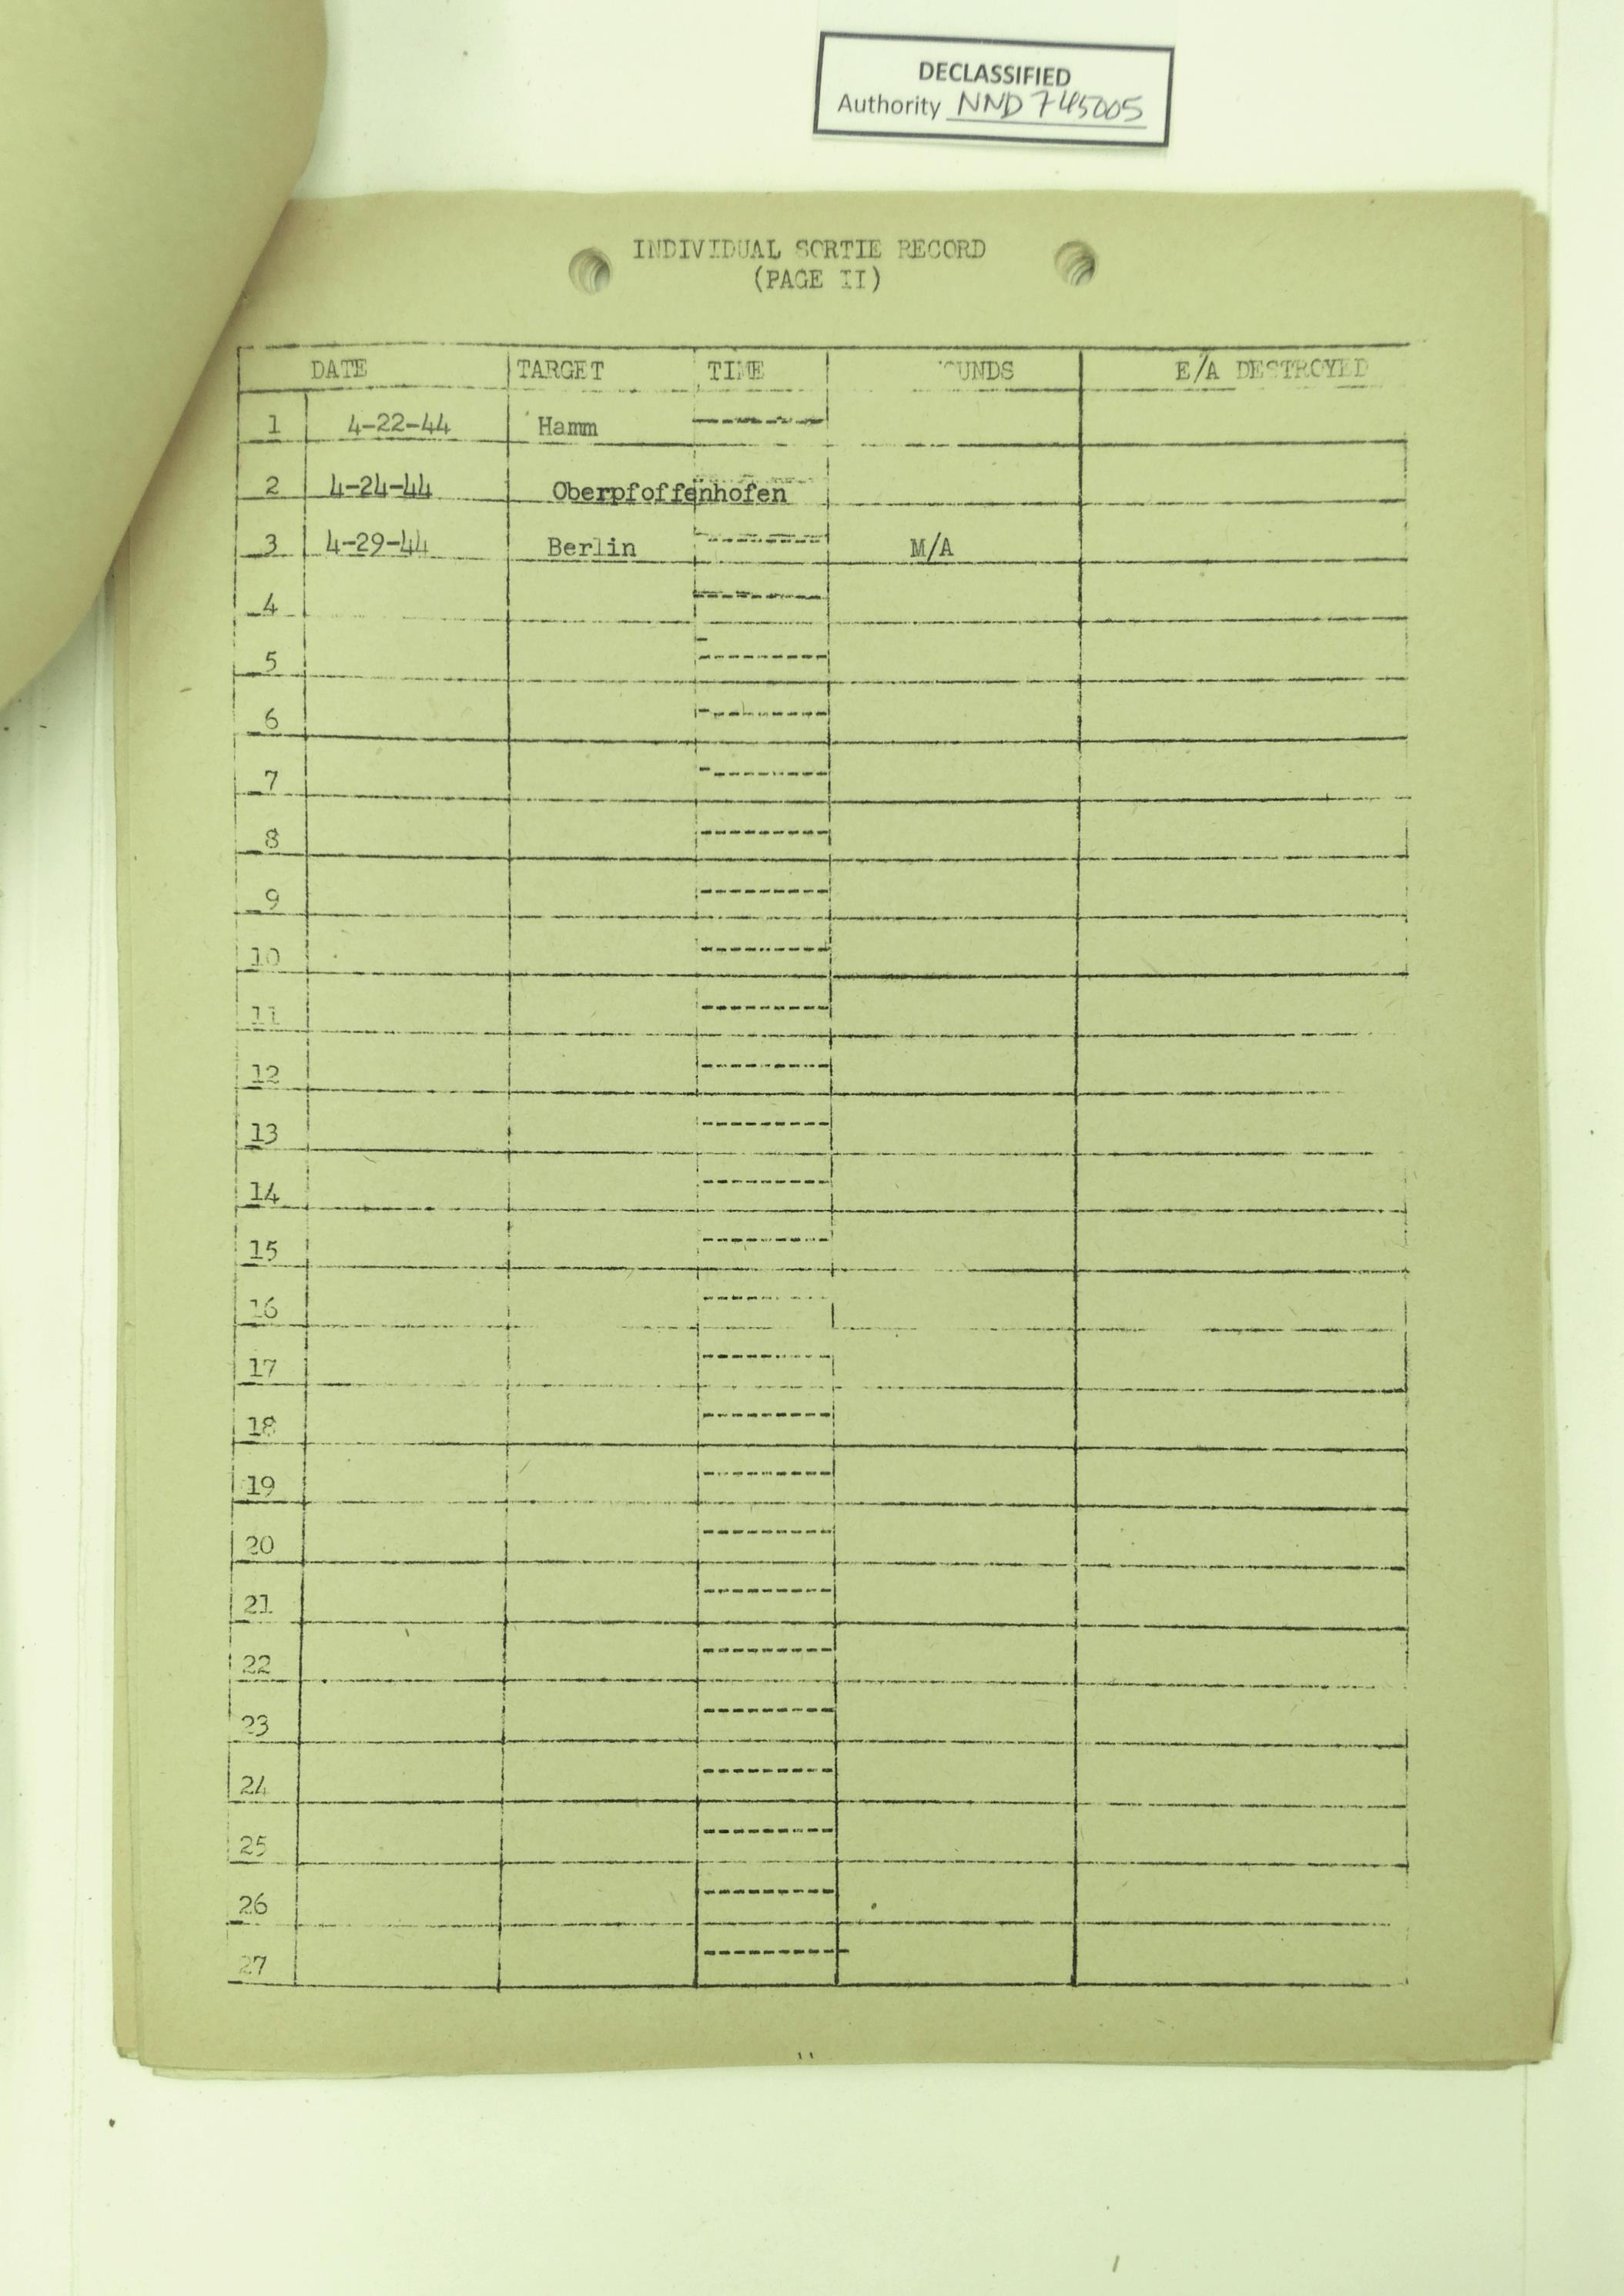 DECLASSIFIED
Authority NND 745005
INDIVIDUAL SORTIE RECORD
(PAGE II)
DATE TARGET TIME UNDS E/A DESTROYED
1 4-22-44 Hamm
2 4-24-44 Oberpfoffenhofen
3 4-29-44 Berlin M/A
4
5
6
7
8
9
10
11
12
13
14
15
16
17
18
19
20
21
22
23
24
25
26
27